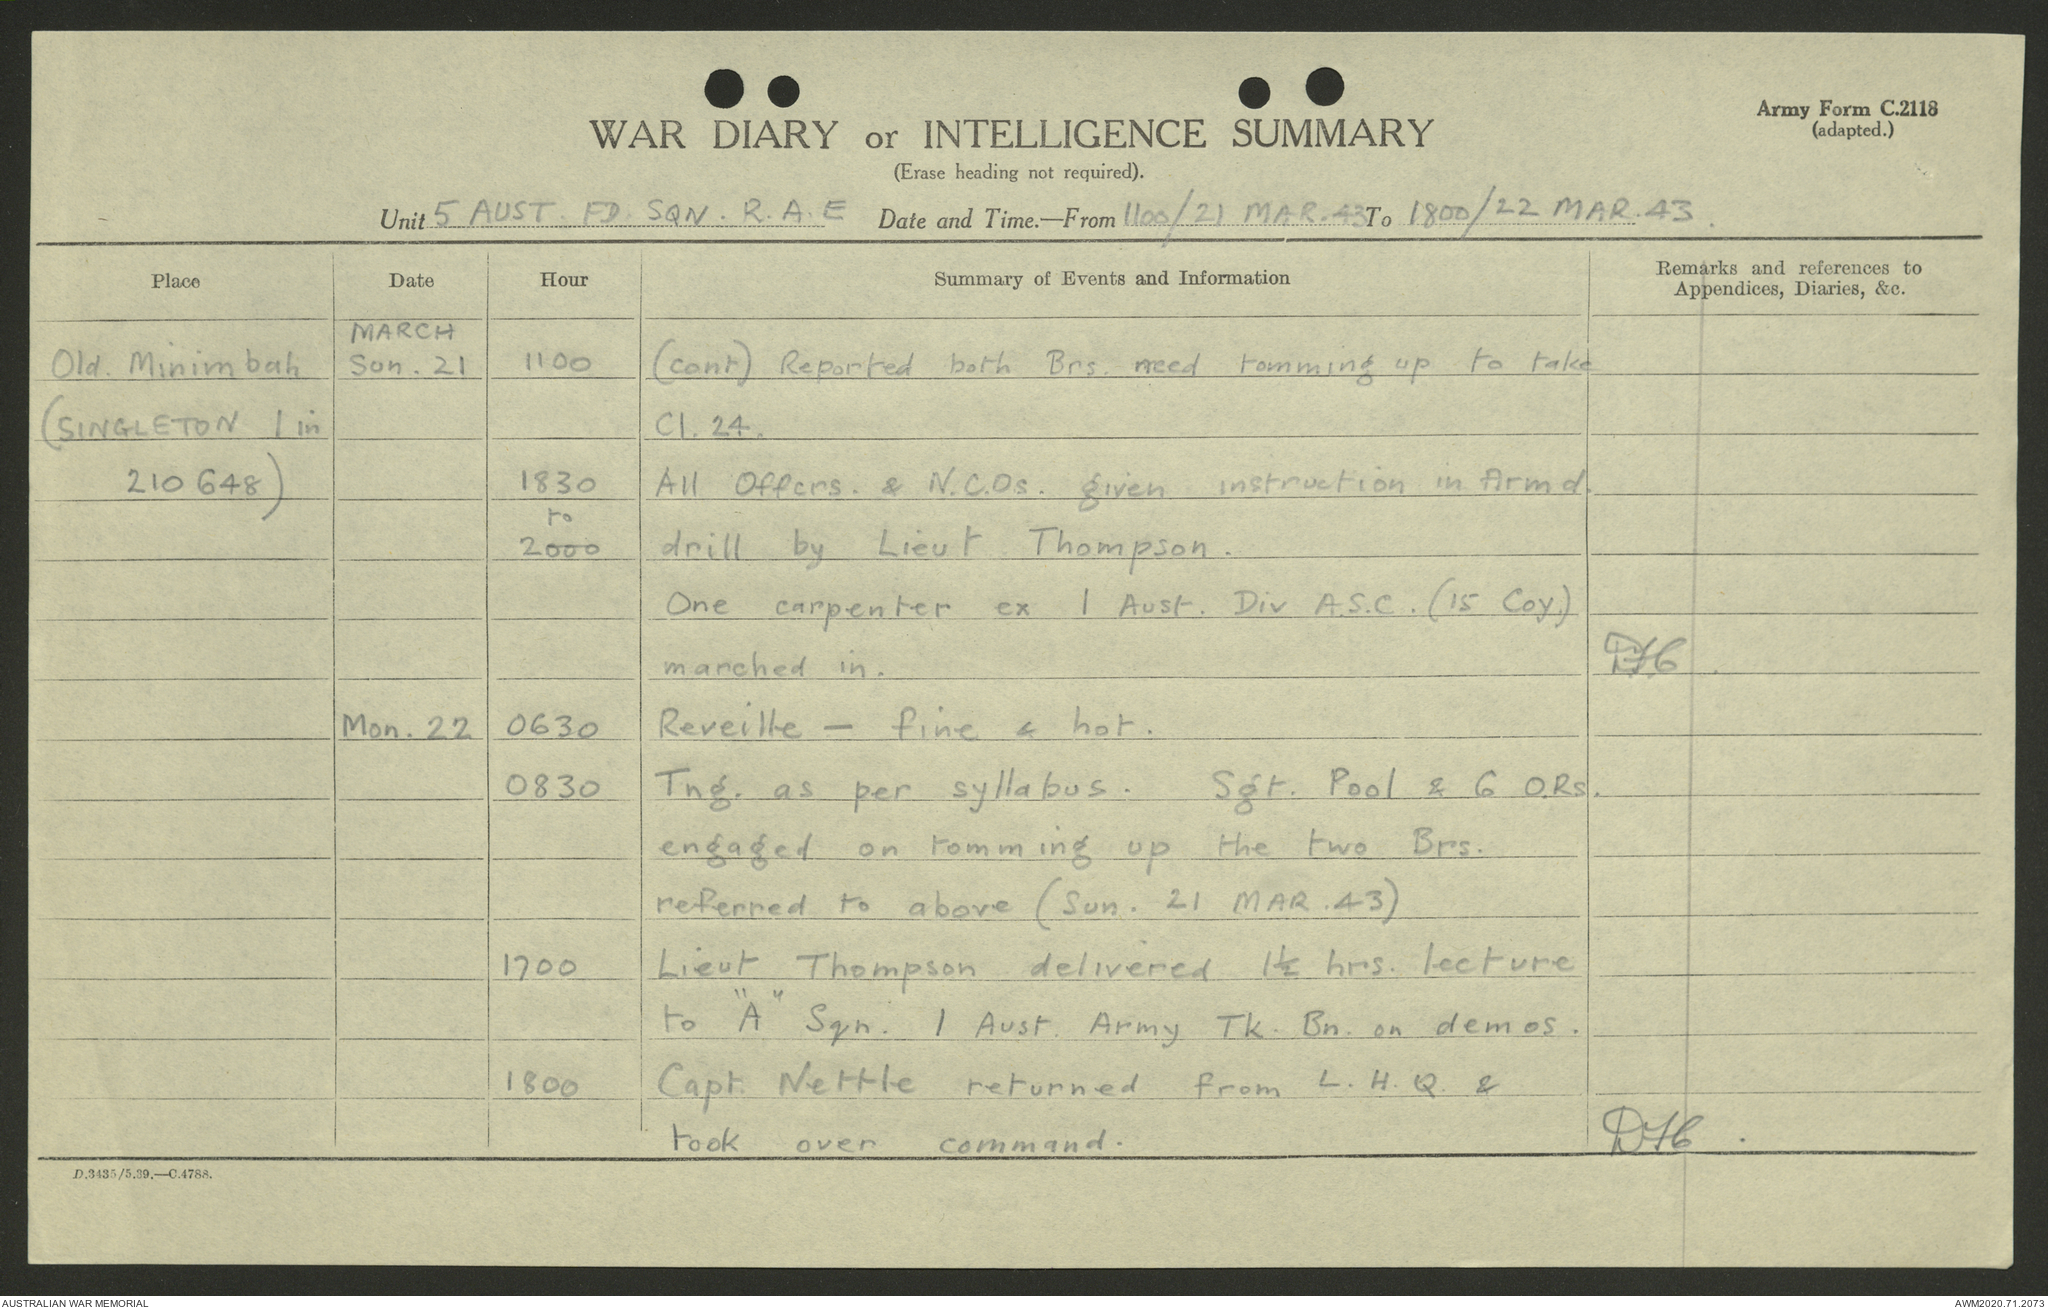 Army Form C.2118
(adapted.)
WAR DIARY or INTELLIGENCE SUMMARY
(Erase heading not required).
Unit 5 AUST. FD. SQN. R.A.E Date and Time.—From 1100/21 MAR.43 To 1800/22 MAR.43.
Place Date Hour Summary of Events and Information Remarks and references to Appendices, Diaries, &c.
MARCH
Old. Minimbah Sun. 21 1100 (cont) Reported both Brs. need tomming up to take
(SINGLETON 1 in Cl. 24.
210648) 1830 All Offcrs. & N.C.Os. given instruction in Armd.
to
2000 drill by Lieut Thompson.
One carpenter ex 1 Aust. Div A.S.C. (15 Coy.)
marched in.
Mon. 22 0630 Reveille — fine & hot.
0830 Tng. as per syllabus. Sgt. Pool & 6 O.Rs.
engaged on tomming up the two Brs.
referred to above (Sun. 21 MAR.43)
1700 Lieut Thompson delivered 1½ hrs. lecture
to "A" Sqn. 1 Aust. Army Tk. Bn. on demos.
1800 Capt. Nettle returned from L.H.Q. &
took over command.
D.3435/5.39.—C.4788.
AUSTRALIAN WAR MEMORIAL
AWM2020.71.2073